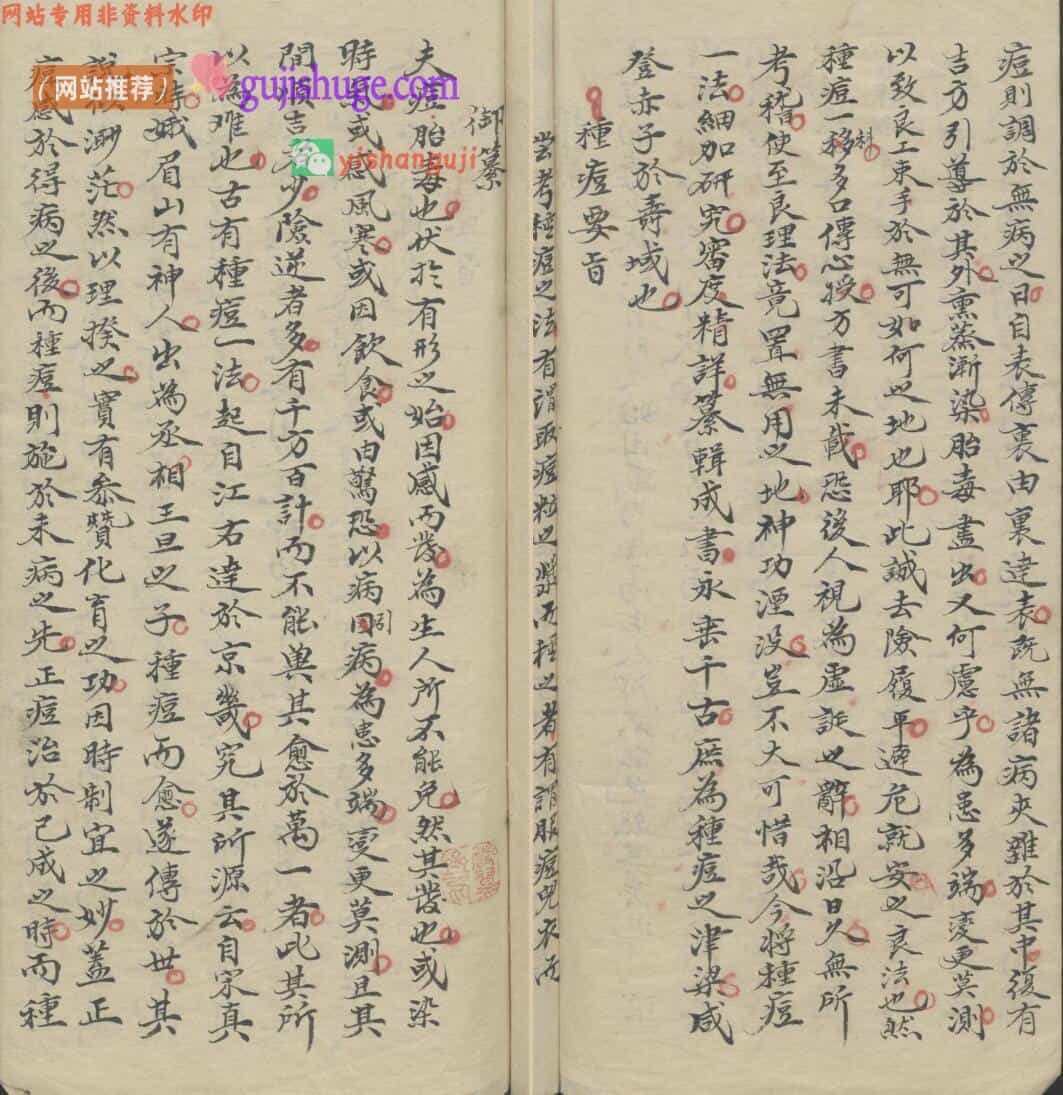 网站专用非资料水印
痘則調於無病之日自表傳裏由裏達表既無諸病夾雜於其中復有
吉方引導於其外熏蒸漸染胎毒盡出又何慮乎為患多端变更莫測
以致良工束手於無可如何之地也耶此誠去險履平避危就安之良法也然
種痘一科移多口傳心授方書未載恐後人視為虛誕之辭相沿日久無所
考稽使至良理法竟置無用之地神功湮没豈不大可惜哉今将種痘
一法細加研究審度精詳纂輯成書永垂千古庶為種痘之津梁咸
登赤子於壽域也
種痘要旨
嘗考種痘之法有謂取痘粒之漿而種之者有謂服痘兒衣而
御纂
夫痘胎毒也伏於有形之始因感而發為生人所不能免然其發也或染
時氣或感風寒或因飲食或由驚恐以病因引病為患多端变更莫測且其
間順吉者少險逆者多有千方百計而不能與其愈於萬一者此其所
以為难也古有種痘一法起自江右達於京畿究其所源云自宋真
宗時峨眉山有神人出為丞相王旦之子種痘而愈遂傳於世其
說似渺茫然以理揆之實有參贊化育之功因時制宜之妙蓋正
痘感於得病之後而種痘則施於未病之先正痘治於已成之時而種
（网站推荐）
gujishuge.com
yishanguji